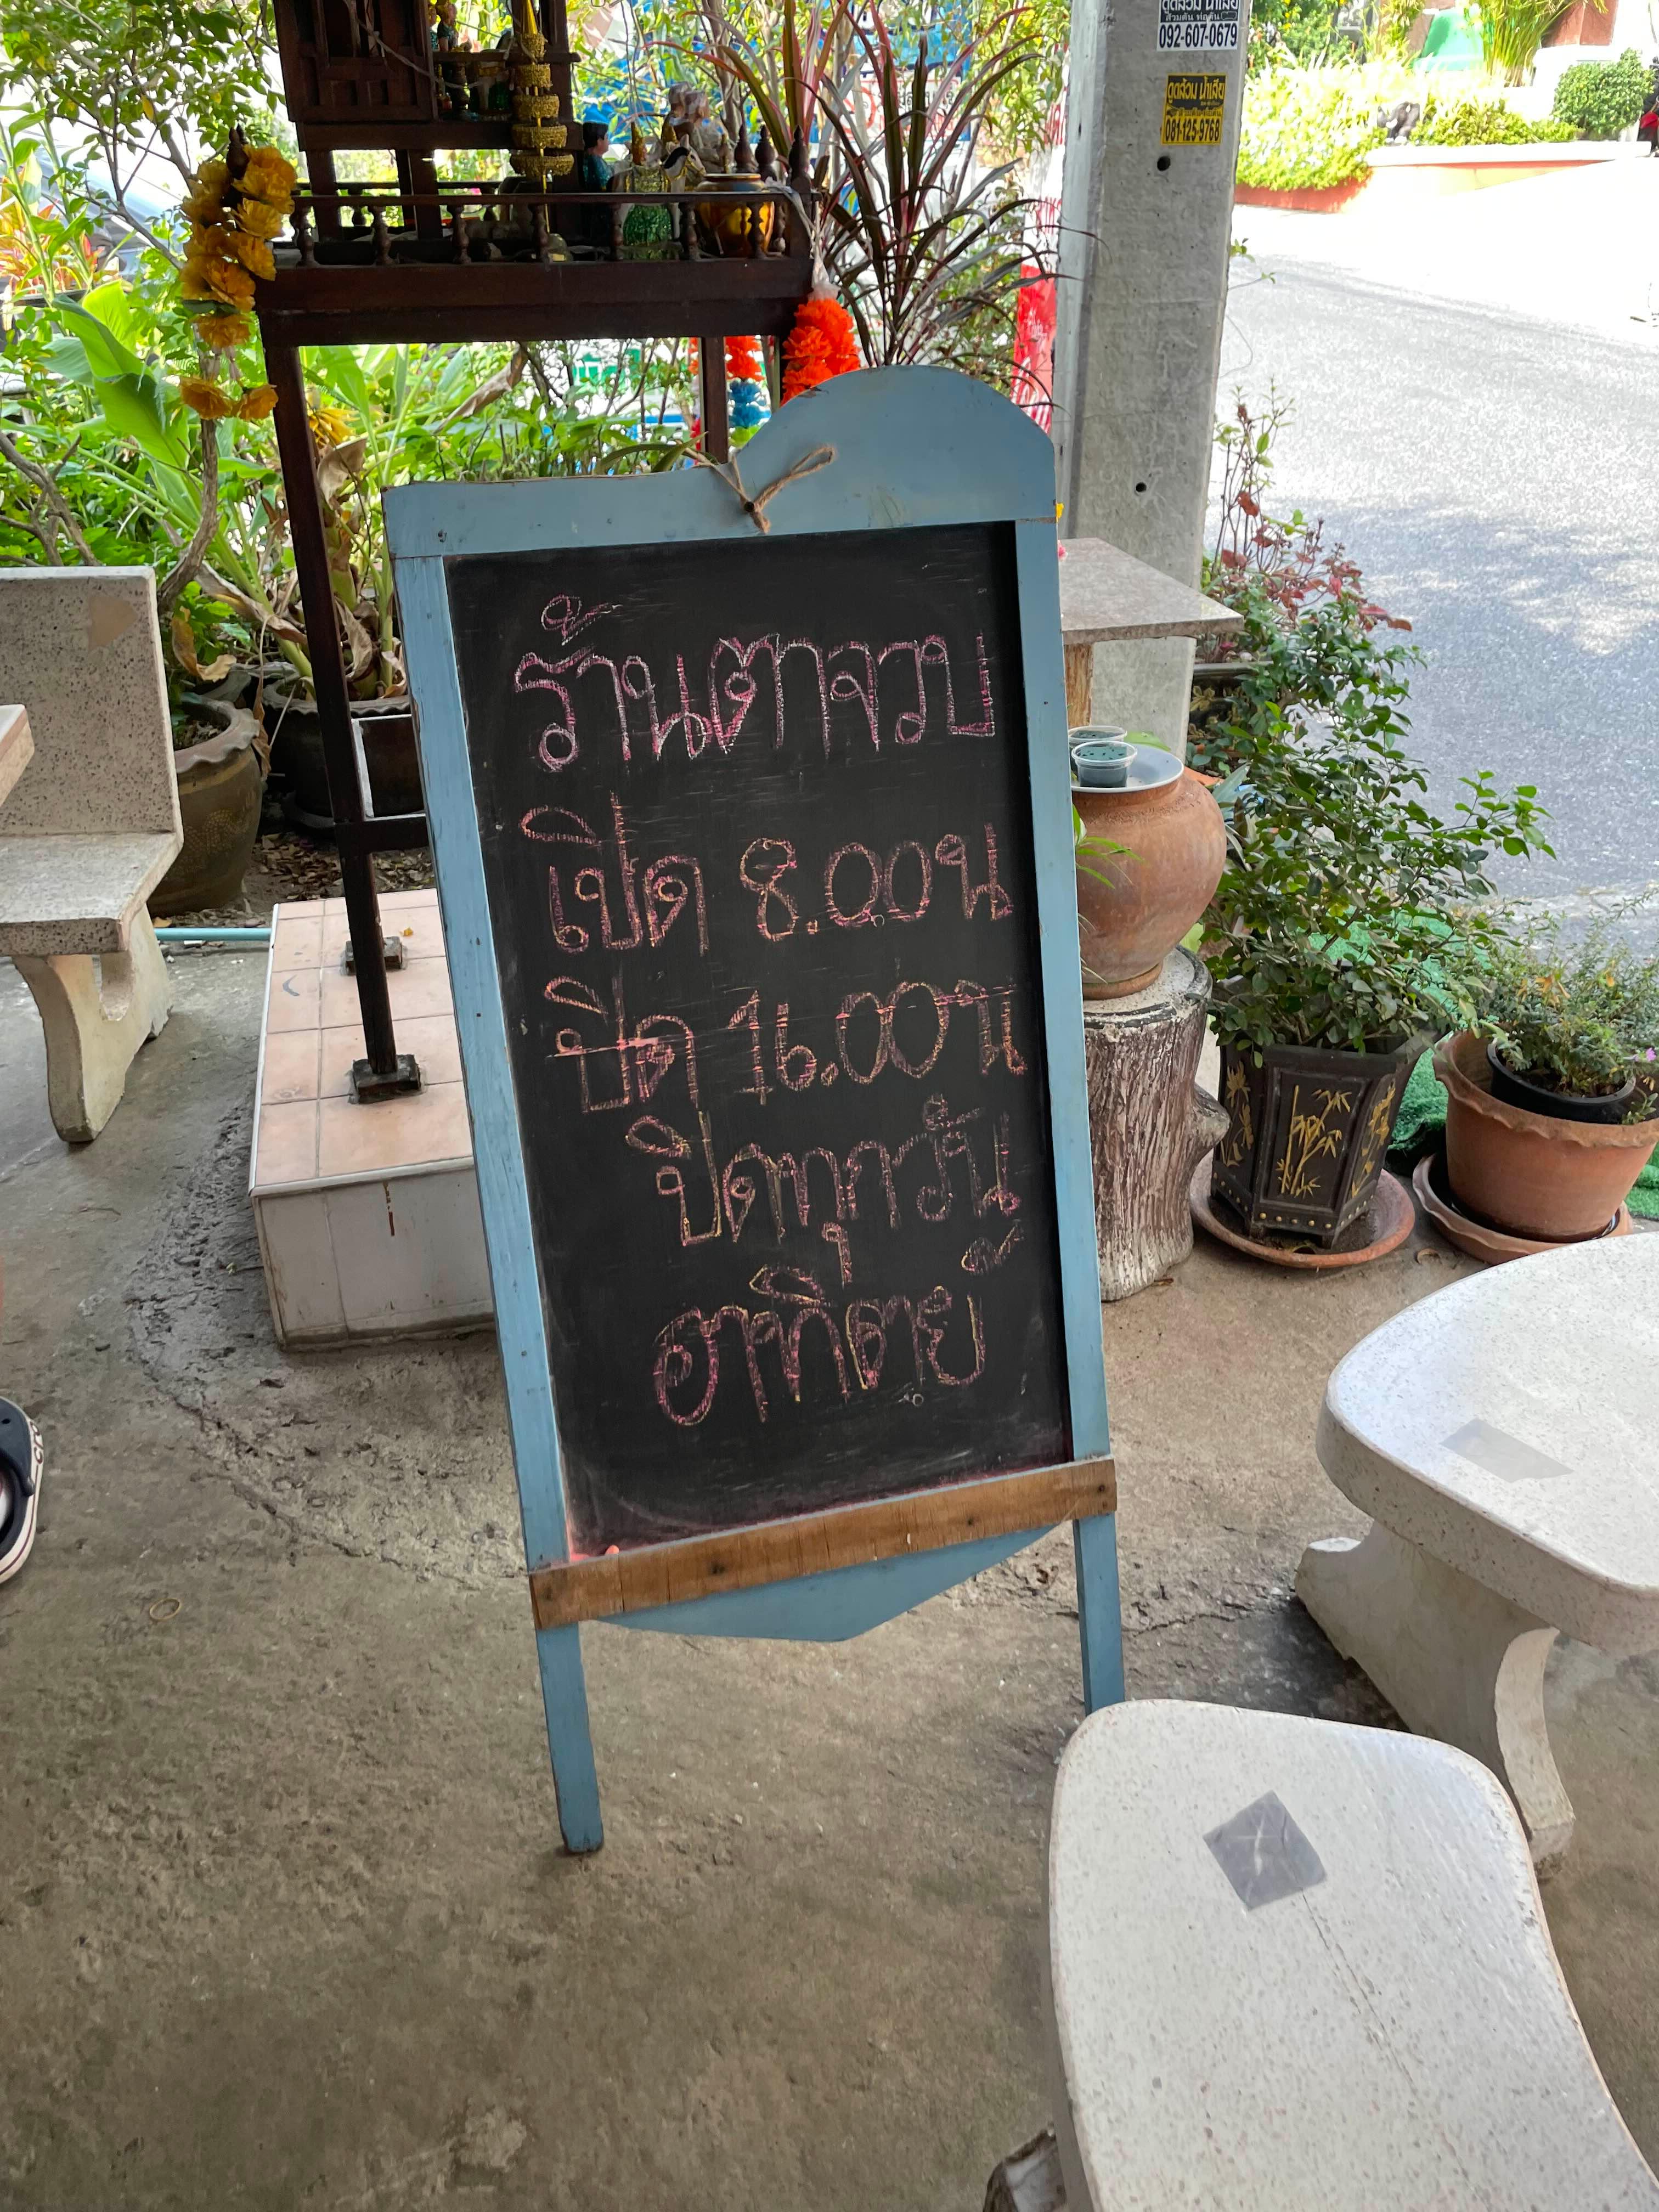 ดูดส้วม น้ำเสีย
ส้วมตัน ท่อตัน
092-607-0679
ดูดส้วม น้ำเสีย
081-125-9768
ร้านตาจวบ
เปิด 8.00น
ปิด 16.00น
ปิดทุกวัน
อาทิตย์